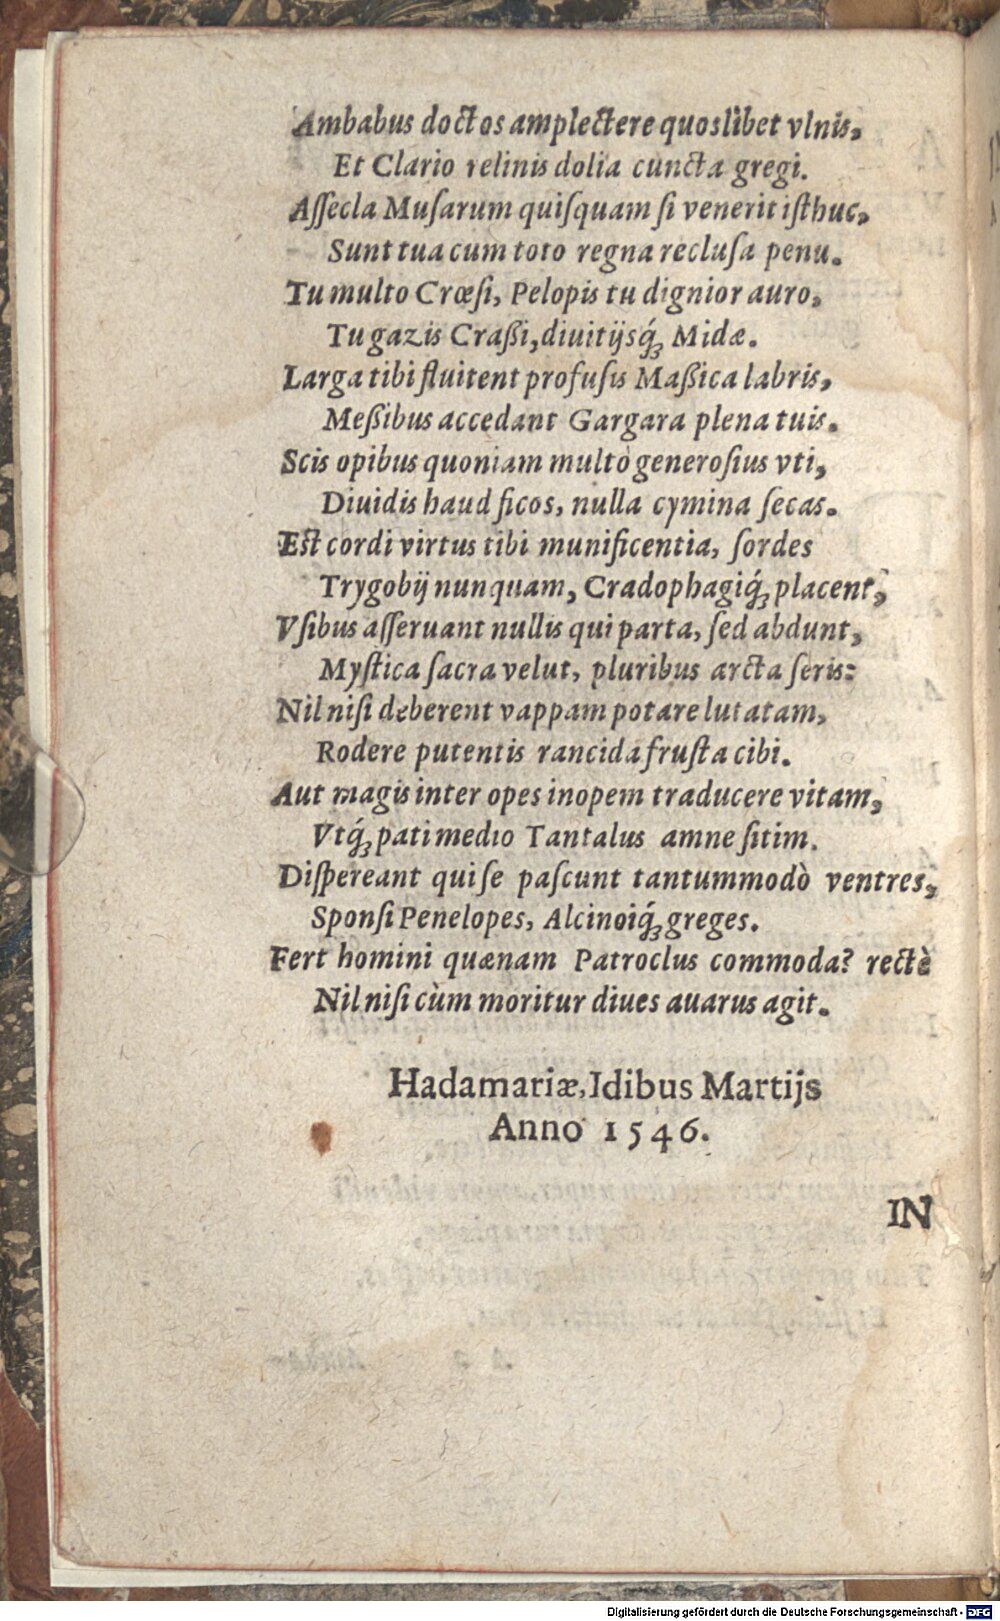 Ambabus doctos amplectere quoslibet vlnis,
Et Clario relinis dolia cuncta gregi.
Aſſecla Muſarum quiſquam ſi venerit iſthuc,
Sunt tua cum toto regna recluſa penu.
Tu multo Crœſi, Pelopis tu dignior auro,
Tu gazis Craßi, diuitijsq́ꝫ Midæ.
Larga tibi fluitent profuſis Maßica labris,
Meßibus accedant Gargara plena tuis.
Scis opibus quoniam multò generoſius vti,
Diuidis haud ficos, nulla cymina ſecas.
Eſt cordi virtus tibi munificentia, ſordes
Trygobij nunquam, Cradophagiq́ꝫ placent,
Vſibus aſſeruant nullis qui parta, ſed abdunt,
Myſtica ſacra velut, pluribus arcta ſeris:
Nil niſi deberent vappam potare lutatam,
Rodere putentis rancida fruſta cibi.
Aut magis inter opes inopem traducere vitam,
Vtq́ꝫ pati medio Tantalus amne ſitim.
Diſpereant qui ſe paſcunt tantummodò ventres,
Sponſi Penelopes, Alcinoiq́ꝫ greges.
Fert homini quænam Patroclus commoda? rectè
Nil niſi cùm moritur diues auarus agit.
Hadamariæ, Idibus Martijs
Anno 1546.
IN
Digitalisierung gefördert durch die Deutsche Forschungsgemeinschaft - DFG